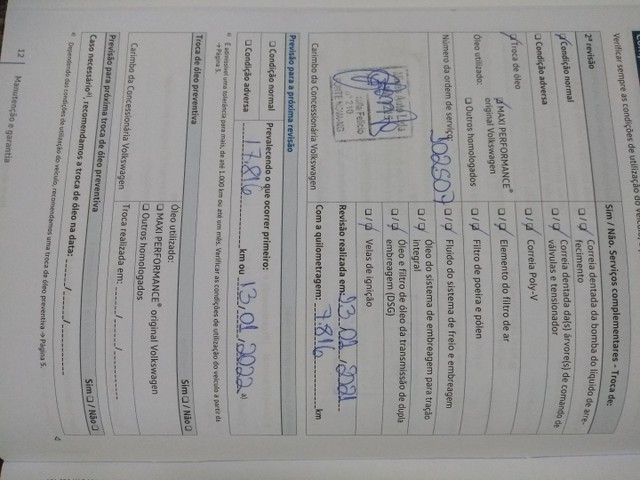 Verificar sempre as condições de utilização do veículo,
2ª revisão
Sim / Não. Serviços complementares - Troca de:
Condição normal
Condição adversa
Troca de óleo
Óleo utilizado:
MAXI PERFORMANCE®
original Volkswagen
Outros homologados
Número da ordem de serviço:
302507
Carimbo da Concessionária Volkswagen
Correia dentada da bomba do líquido de arre-
fecimento
Correia dentada da(s) árvore(s) de comando de
válvulas e tensionador
Correia Poly-V
Elemento do filtro de ar
Filtro de poeira e pólen
Fluido do sistema de freio e embreagem
Óleo do sistema de embreagem para tração
integral
Óleo e filtro de óleo da transmissão de dupla
embreagem (DSG)
Velas de ignição
Revisão realizada em: 13, 01, 2021
Com a quilometragem: 7.816 km
Previsão para a próxima revisão
Condição normal
Condição adversa
Prevalecendo o que ocorrer primeiro:
17.816 km ou 13, 01, 2022 a)
a) É admissível uma tolerância para mais, de até 1.000 km ou até um mês. Verificar as condições de utilização do veículo a partir da
→ Página 5.
Troca de óleo preventiva
Sim / Não
Óleo utilizado:
MAXI PERFORMANCE® original Volkswagen
Outros homologados
Carimbo da Concessionária Volkswagen
Troca realizada em: / /
Previsão para próxima troca de óleo preventiva
Sim / Não
Caso necessário a), recomendamos a troca de óleo na data: / /
a) Dependendo das condições de utilização do veículo, recomendamos uma troca de óleo preventiva → Página 5.
12 | Manutenção e garantia